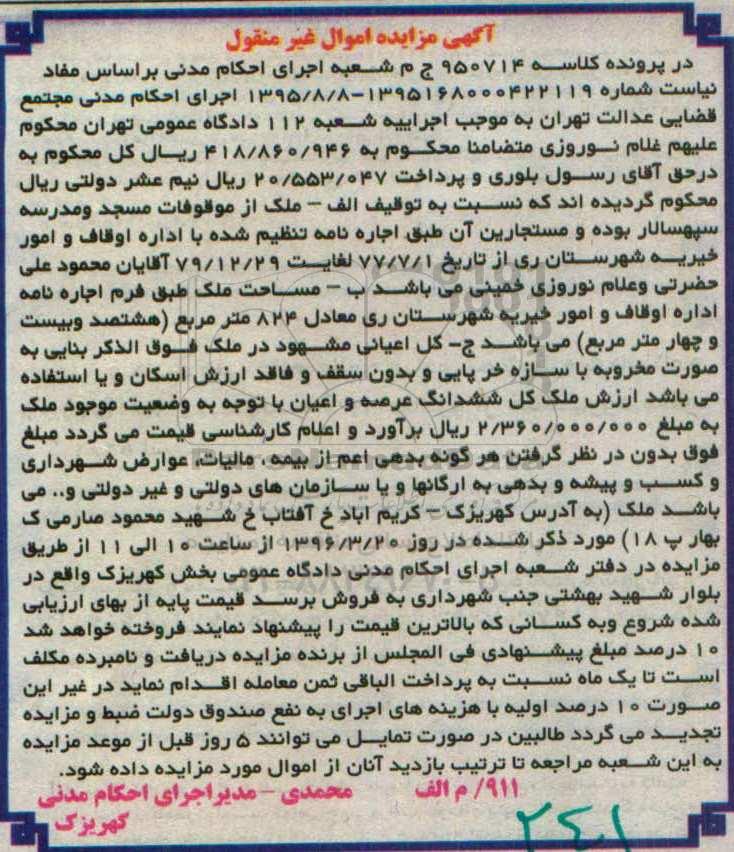 آگهی مزایده اموال غیر منقول
در پرونده کلاسه ۹۵۰۷۱۴ ج م شعبه اجرای احکام مدنی براساس مفاد
نیاست شماره ۱۳۹۵۱۶۸۰۰۰۴۲۲۱۱۹-۱۳۹۵/۸/۸ اجرای احکام مدنی مجتمع
قضایی عدالت تهران به موجب اجراییه شعبه ۱۱۲ دادگاه عمومی تهران محکوم
علیهم غلام نوروزی متضامنا محکوم به ۴۱۸/۸۶۰/۹۴۶ ریال کل محکوم به
درحق آقای رسول بلوری و پرداخت ۲۰/۵۵۳/۰۴۷ ریال نیم عشر دولتی ریال
محکوم گردیده اند که نسبت به توقیف الف – ملک از موقوفات مسجد ومدرسه
سپهسالار بوده و مستجارین آن طبق اجاره نامه تنظیم شده با اداره اوقاف و امور
خیریه شهرستان ری از تاریخ ۷۷/۷/۱ لغایت ۷۹/۱۲/۲۹ آقایان محمود علی
حضرتی وغلام نوروزی خمینی می باشد ب – مساحت ملک طبق فرم اجاره نامه
اداره اوقاف و امور خیریه شهرستان ری معادل ۸۲۴ متر مربع (هشتصد وبیست
و چهار متر مربع) می باشد ج- کل اعیانی مشهود در ملک فوق الذکر بنایی به
صورت مخروبه با سازه خر پایی و بدون سقف و فاقد ارزش اسکان و یا استفاده
می باشد ارزش ملک کل ششدانگ عرصه و اعیان با توجه به وضعیت موجود ملک
به مبلغ ۲/۳۶۰/۰۰۰/۰۰۰ ریال برآورد و اعلام کارشناسی قیمت می گردد مبلغ
فوق بدون در نظر گرفتن هر گونه بدهی اعم از بیمه ، مالیات، عوارض شهرداری
و کسب و پیشه و بدهی به ارگانها و یا سازمان های دولتی و غیر دولتی و.. می
باشد ملک (به آدرس کهریزک – کریم اباد خ آفتاب خ شهید محمود صارمی ک
بهار پ ۱۸) مورد ذکر شده در روز ۱۳۹۶/۳/۲۰ از ساعت ۱۰ الی ۱۱ از طریق
مزایده در دفتر شعبه اجرای احکام مدنی دادگاه عمومی بخش کهریزک واقع در
بلوار شهید بهشتی جنب شهرداری به فروش برسد قیمت پایه از بهای ارزیابی
شده شروع وبه کسانی که بالاترین قیمت را پیشنهاد نمایند فروخته خواهد شد
۱۰ درصد مبلغ پیشنهادی فی المجلس از برنده مزایده دریافت و نامبرده مکلف
است تا یک ماه نسبت به پرداخت الباقی ثمن معامله اقدام نماید در غیر این
صورت ۱۰ درصد اولیه با هزینه های اجرای به نفع صندوق دولت ضبط و مزایده
تجدید می گردد طالبین در صورت تمایل می توانند ۵ روز قبل از موعد مزایده
به این شعبه مراجعه تا ترتیب بازدید آنان از اموال مورد مزایده داده شود.
۹۱۱/ م الف محمدی – مدیراجرای احکام مدنی
کهریزک
۲۴۱